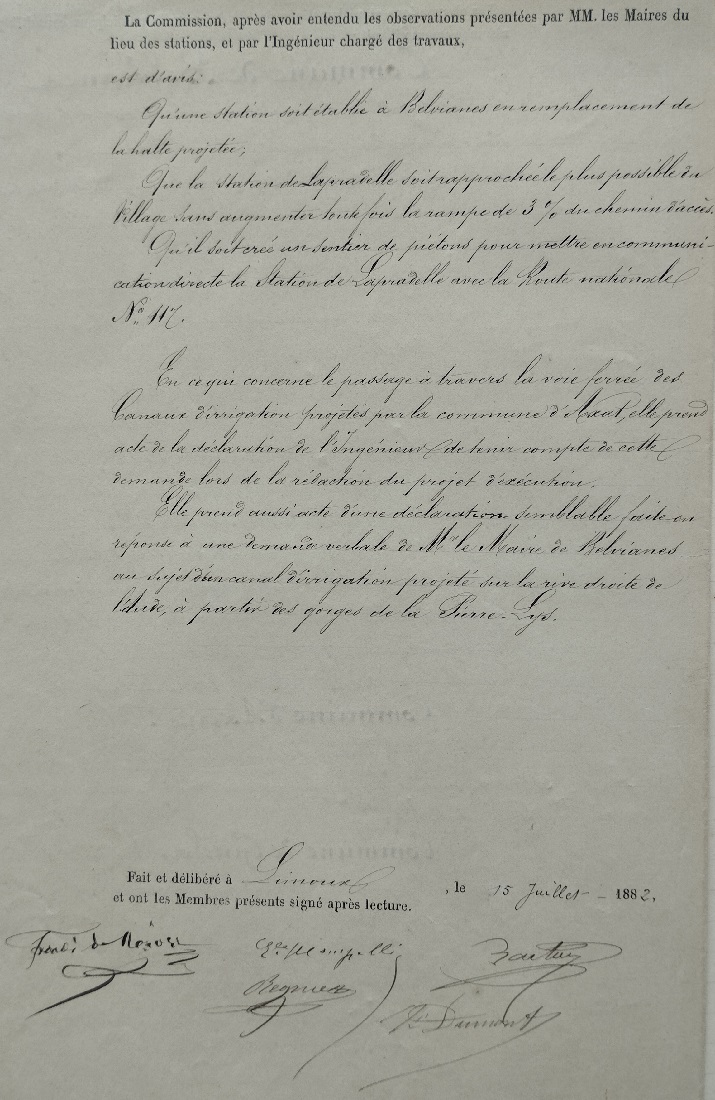 La Commission, après avoir entendu les observations présentées par MM. les Maires du
lieu des stations, et par l'Ingénieur chargé des travaux,
est d'avis:
Qu'une station soit établie à Belvianes en remplacement de
la halte projetée;
Que la station de Lapradelle soit rapprochée le plus possible du
Village sans augmenter toutefois la rampe de 3 % du chemin d'accès.
Qu'il soit créé un sentier de piétons pour mettre en communi-
cation directe la Station de Lapradelle avec la Route nationale
No 117.
En ce qui concerne le passage à travers la voie ferrée des
Canaux d'irrigation projetés par la commune d'Axat, elle prend
acte de la déclaration de l'Ingénieur de tenir compte de cette
demande lors de la rédaction du projet d'exécution.
Elle prend aussi acte d'une déclaration semblable faite en
réponse à une demande verbale de Mr le Maire de Belvianes
au sujet d'un canal d'irrigation projeté sur la rive droite de
l'Aude, à partir des gorges de la Pierre-Lys.
Fait et délibéré à Limoux, le 15 Juillet 1882,
et ont les Membres présents signé après lecture.
Regnier
Dumont